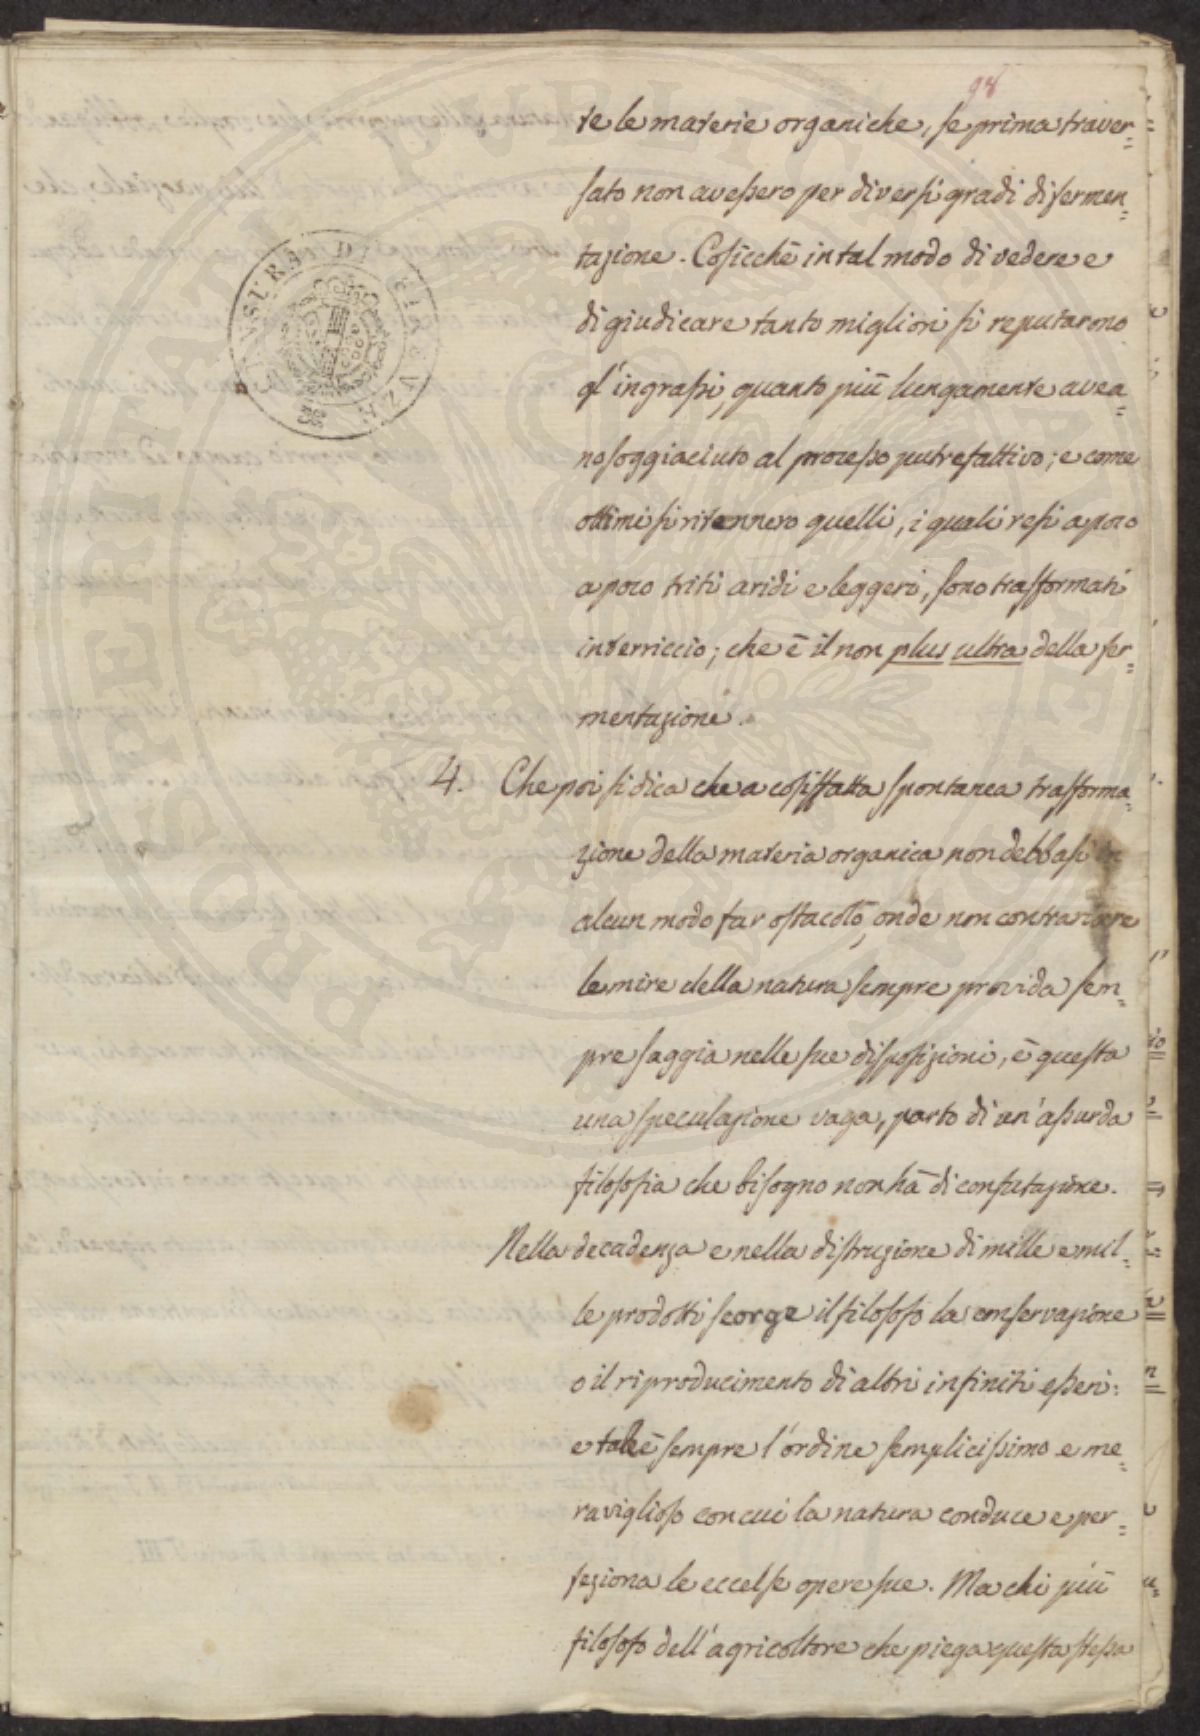 98
te le materie organiche, se prima traver=
sato non avessero per diversi gradi di fermen=
tazione. Cosicchè in tal modo di vedere e
di giudicare tanto migliori si reputarono
gl'ingrassi, quanto più lungamente avea=
no soggiaciuto al processo putrefattivo; e come
ottimi si ritennero quelli, i quali resi a poco
a poco triti aridi e leggeri, sono trasformati
in terriccio; che è il non plus ultra della fer=
mentazione.
4. Che poi si dica che a cosiffatta spontanea trasforma=
zione della materia organica non debbasi in
alcun modo far ostacolo, onde non contrariare
le mire della natura sempre provida sem=
pre saggia nelle sue disposizioni, è questa
una speculazione vaga, parto di un'assurda
filosofia che bisogno non hà di confutazione.
Nella decadenza e nella distruzione di mille e mil=
le prodotti scorge il filosofo la conservazione
o il riproducimento di altri infiniti esseri:
e tale è sempre l'ordine semplicissimo e me=
raviglioso con cui la natura conduce e per=
feziona le eccelse opere sue. Ma chi più
filosofo dell'agricoltore che piega questa stessa
PROSPERITATI PUBLICAE